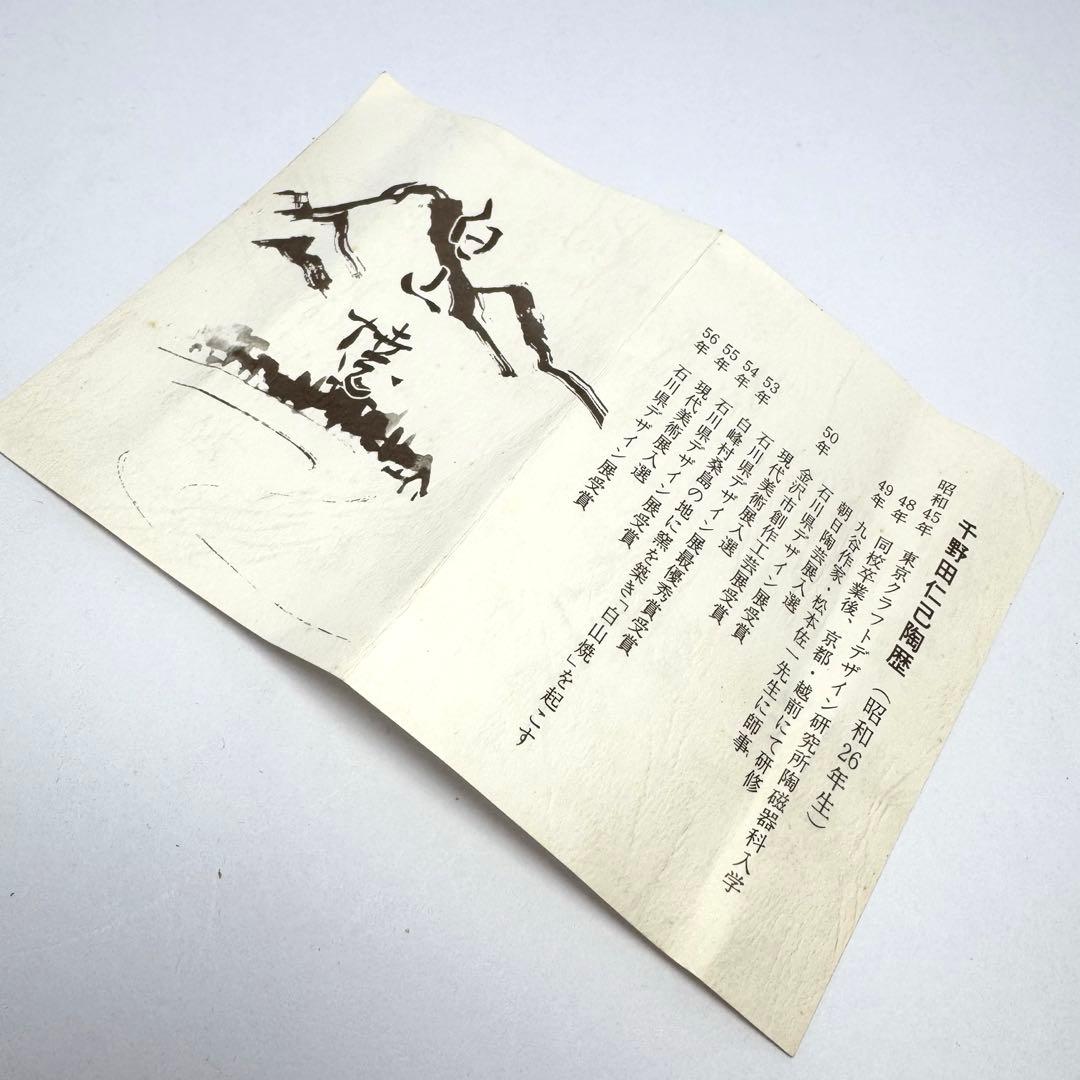 白山
憶
千野田仁己陶歴（昭和26年生）
昭和45年　東京クラフトデザイン研究所陶磁器科入学
48年　同校卒業後、京都・越前にて研修
49年　九谷作家・松本佐一先生に師事
朝日陶芸展入選
石川県デザイン展受賞
50年　金沢市創作工芸展受賞
現代美術展入選
石川県デザイン展最優秀賞受賞
53年　白峰村桑島の地に窯を築き「白山焼」を起こす
54年　石川県デザイン展受賞
55年　現代美術展入選
56年　石川県デザイン展受賞